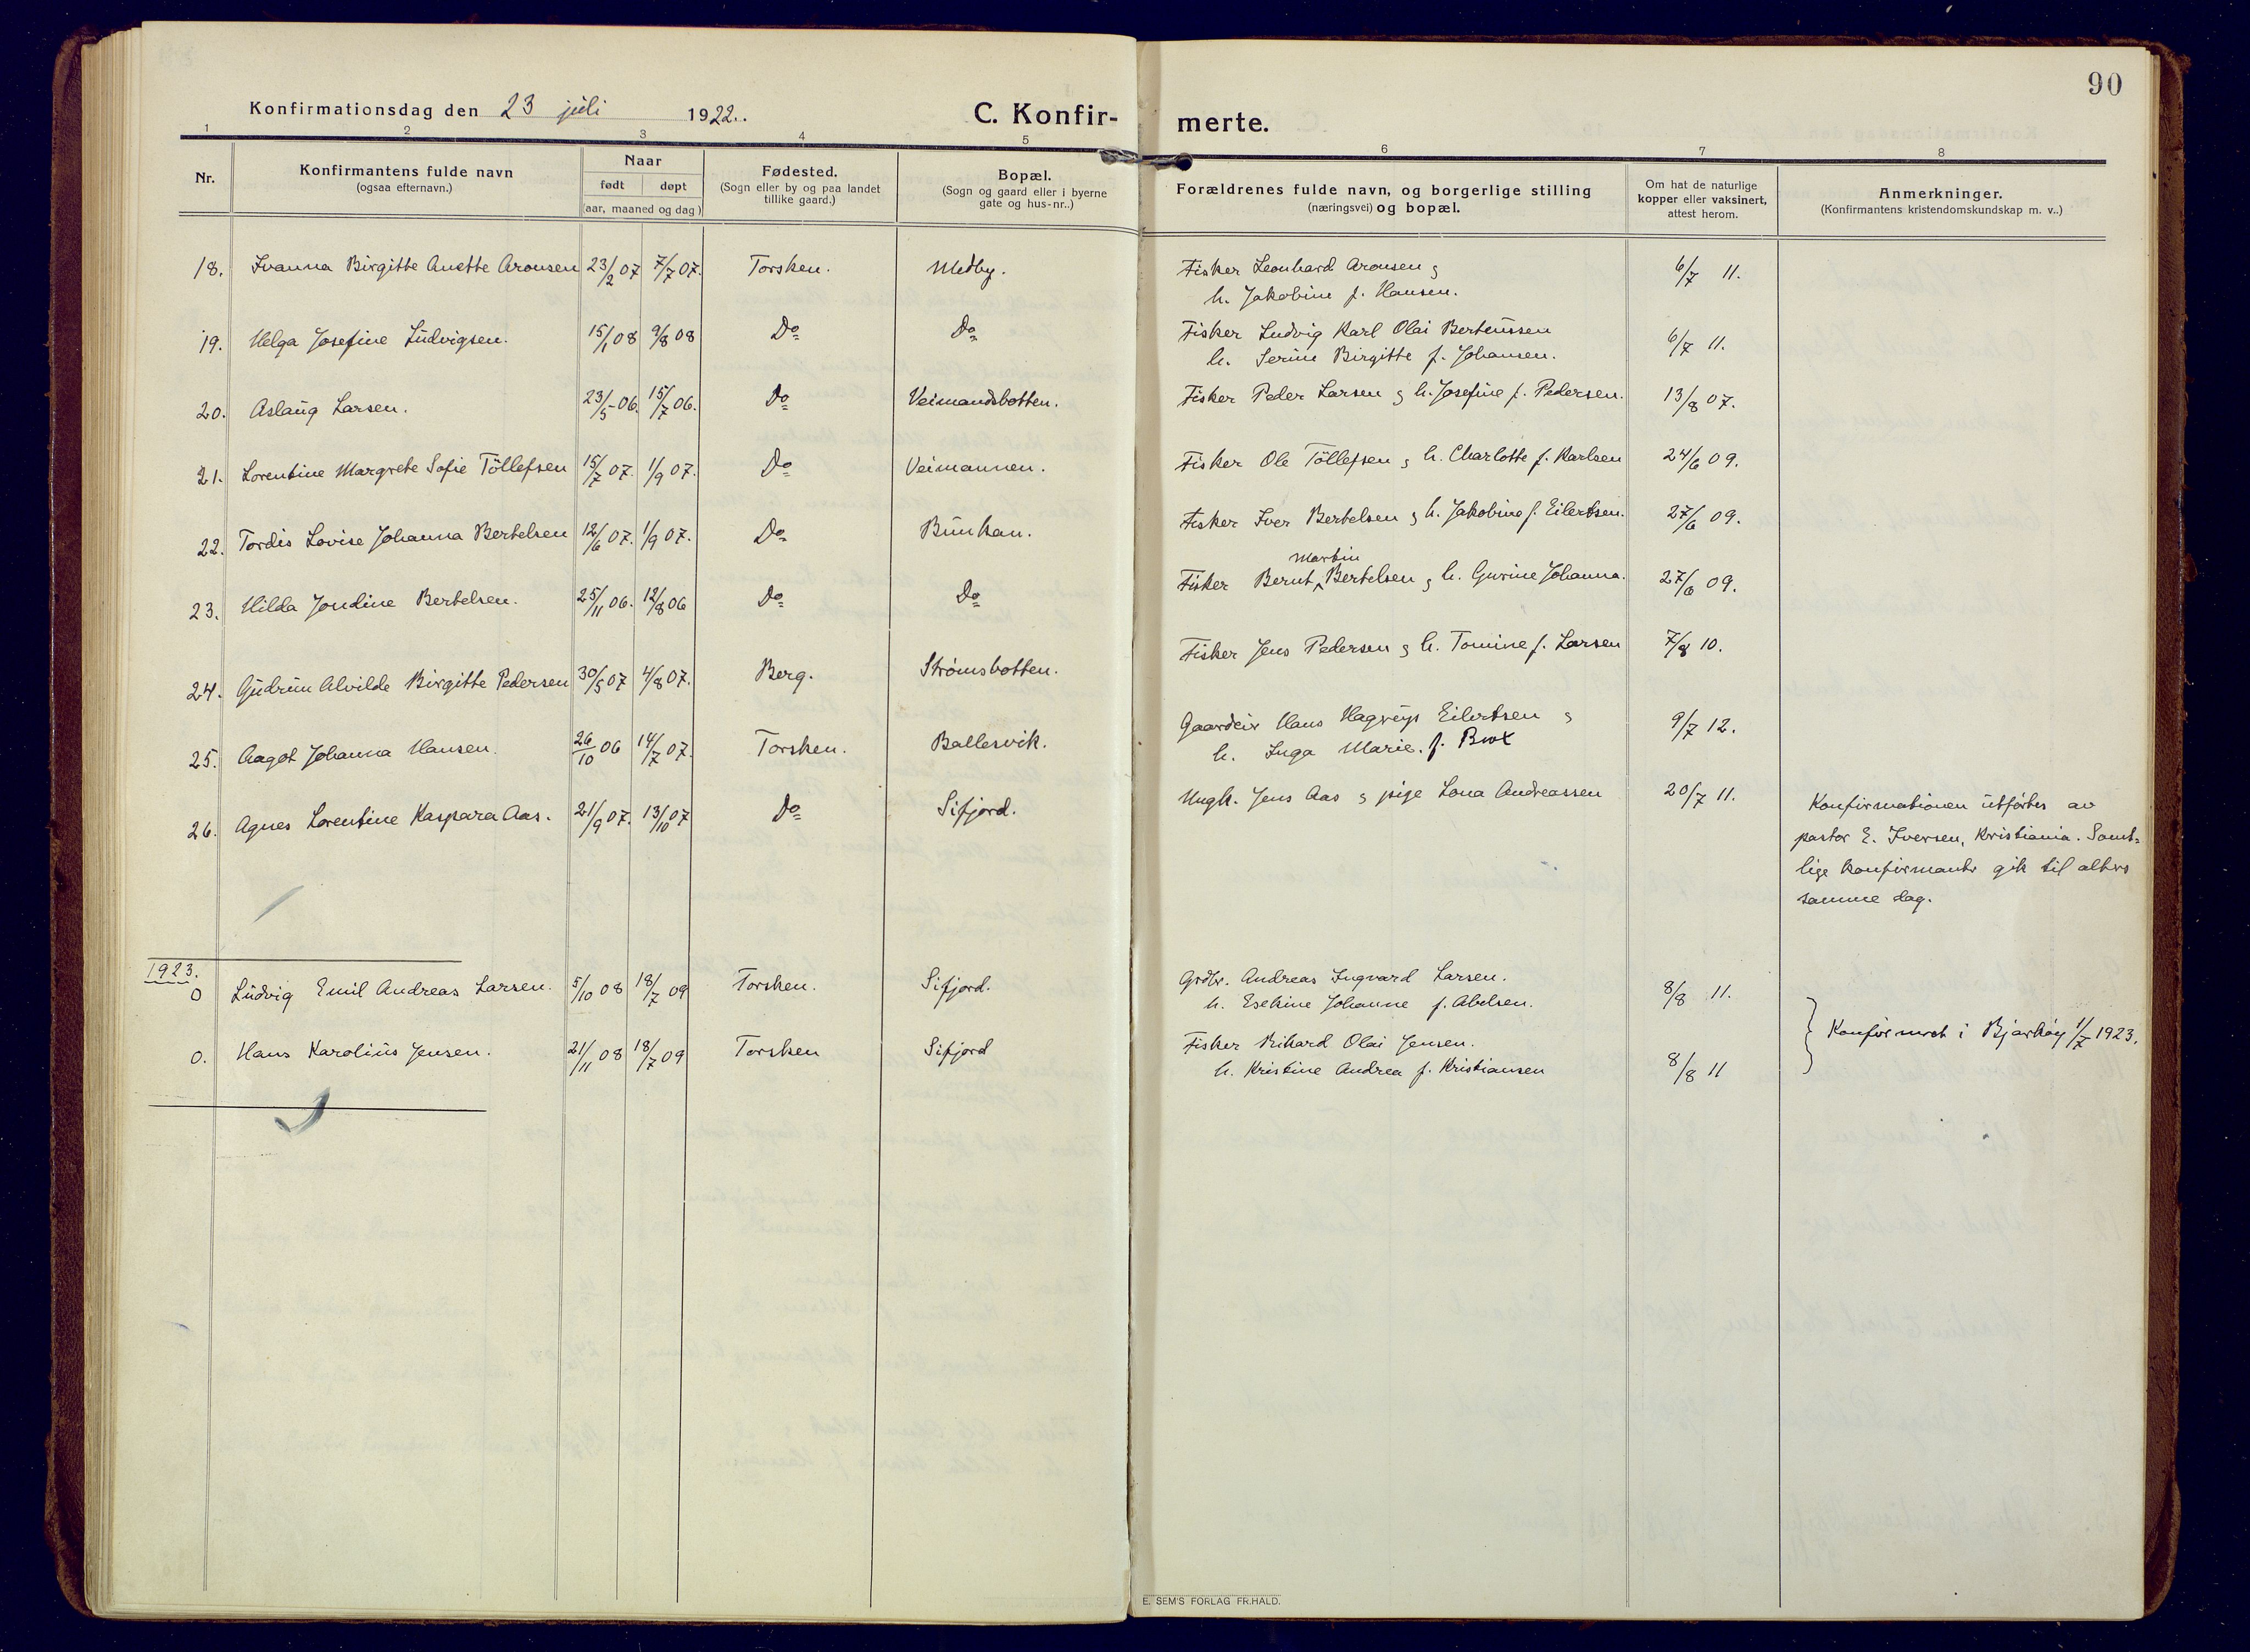 90
Konfirmationsdag den 23 juli 1922.
C. Konfirmerte.
1 2 3 4 5 6 7 8
Nr.
Konfirmantens fulde navn
(ogsaa efternavn.)
Naar
født døpt
(aar, maaned og dag)
Fødested.
(Sogn eller by og paa landet
tillike gaard.)
Bopæl.
(Sogn og gaard eller i byerne
gate og hus-nr..)
Forældrenes fulde navn, og borgerlige stilling
(næringsvei) og bopæl.
Om hat de naturlige
kopper eller vaksinert,
attest herom.
Anmerkninger.
(Konfirmantens kristendomskundskap m. v..)
18. Ivanna Birgitte Anette Aronsen 23/2 07 7/7 07. Torsken. Medby. Fisker Leonhard Aronsen &
h. Jakobine f. Hansen. 6/7 11.
19. Helga Josefine Ludvigsen. 15/1 08 9/8 08 Do Do Fisker Ludvig Karl Olai Berteussen
h. Serine Birgitte f. Johansen. 6/7 11.
20. Aslaug Larsen. 23/5 06. 15/7 06. Do Veimandsbotten. Fisker Peder Larsen & h. Josefine f. Pedersen. 13/8 07.
21. Lorentine Margrete Sofie Töllefsen 15/7 07. 1/9 07. Do Veimannen. Fisker Ole Töllefsen & h. Charlotte f. Karlsen 24/6 09.
22. Tordis Lovise Johanna Bertelsen 12/6 07. 1/9 07. Do Bunkan. Fisker Iver Bertelsen & h. Jakobine f. Eilertsen. 27/6 09.
23. Hilda Jondine Bertelsen. 25/11 06. 12/8 06 Do Do Fisker Bernt Martin Bertelsen & h. Gurine Johanna. 27/6 09.
24. Gudrun Alvilde Birgitte Pedersen 30/5 07 4/8 07. Berg. Strömsbotten. Fisker Jens Pedersen & h. Tomine f. Larsen 7/8 10.
25. Aagot Johanna Hansen. 26/10 06 14/7 07. Torsken. Ballesvik. Gaardeier Hans Eilertsen &
h. Inga Marie. f. Brox 9/7 12.
26. Agnes Lorentine Kaspara Aas. 21/9 07. 13/10 07 Do Sifjord. Ungk. Jens Aas & pige Lona Andreassen 20/7 11.
Konfirmationen utførtes av
pastor E. Iversen, Kristiania. Samt-
lige konfirmanter gik til alters
samme dag.
1923.
0 Ludvig Emil Andreas Larsen. 5/10 08 18/7 09 Torsken. Sifjord. Grdbr. Andreas Ingvard Larsen.
h. Esekine Johanne f. Abelsen. 8/8 11.
0. Hans Karolius Jensen. 21/11 08 18/7 09 Torsken Sifjord Fisker Rikard Olai Jensen.
h. Kristine Andrea f. Kristiansen 8/8 11
Konfirmert i Bjarköy 1/7 1923.
E. SEM'S FORLAG FR.HALD.